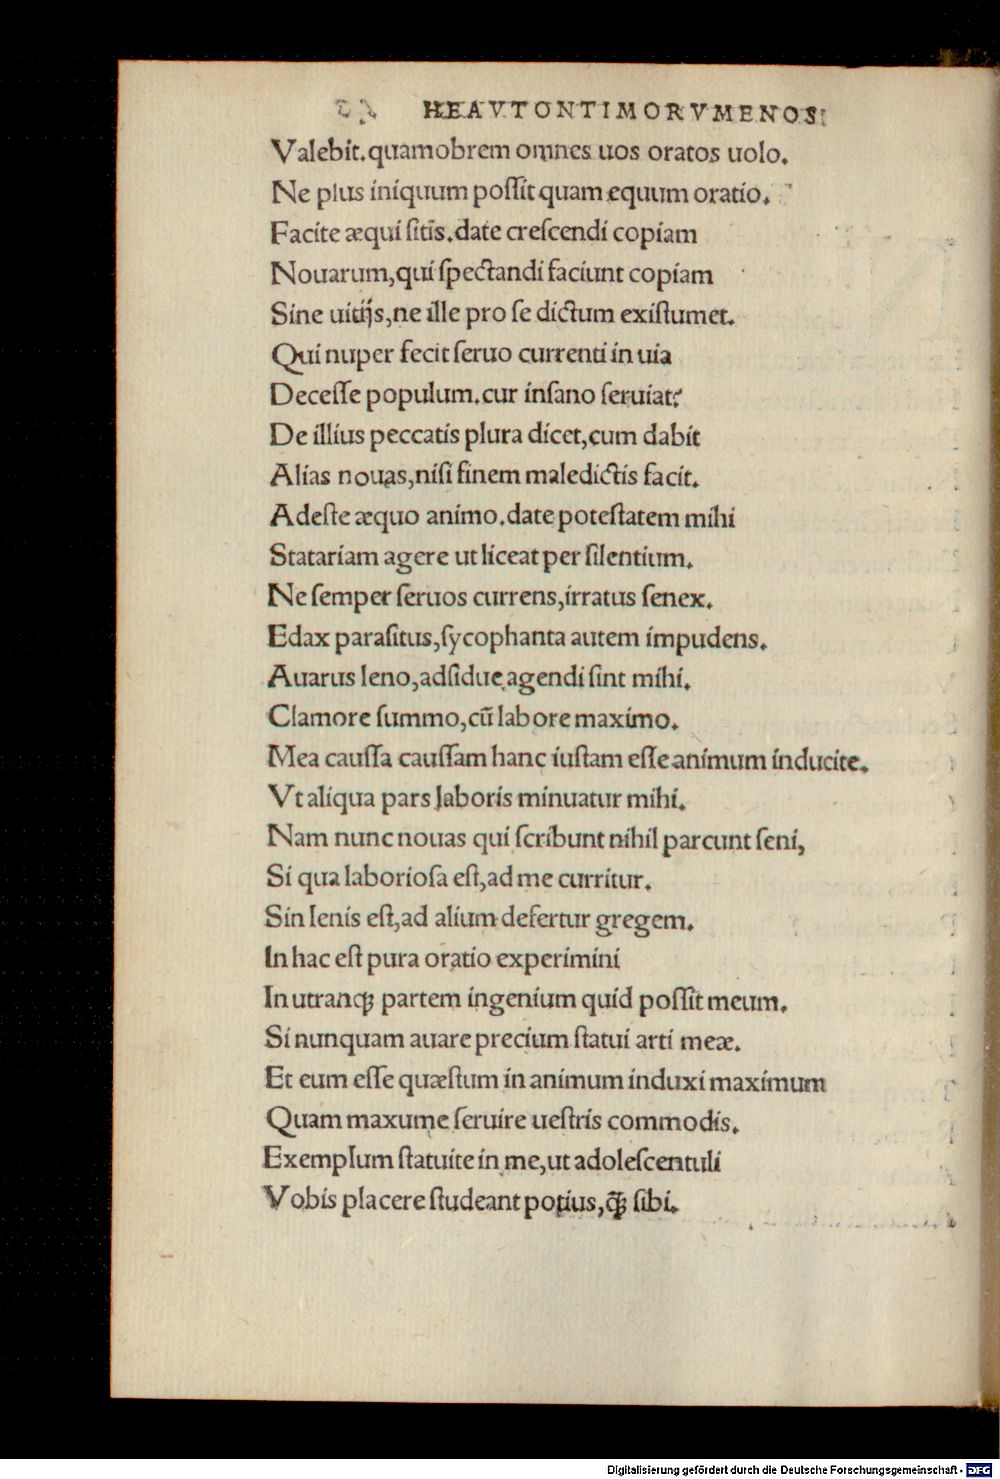 HEAVTONTIMORVMENOS:
Valebit.quamobrem omnes uos oratos uolo.
Ne plus iniquum poſſit quam equum oratio.
Facite æqui ſitis.date creſcendi copiam
Nouarum,qui ſpectandi faciunt copiam
Sine uitijs,ne ille pro ſe dictum exiſtumet.
Qui nuper fecit ſeruo currenti in uia
Deceſſe populum.cur inſano ſeruiat?
De illius peccatis plura dicet,cum dabit
Alias nouas,niſi finem maledictis facit.
Adeſte æquo animo.date poteſtatem mihi
Statariam agere ut liceat per ſilentium.
Ne ſemper ſeruos currens,irratus ſenex.
Edax paraſitus,ſycophanta autem impudens.
Auarus leno,adſidue agendi ſint mihi.
Clamore ſummo,cū labore maximo.
Mea cauſſa cauſſam hanc iuſtam eſſe animum inducite.
Vt aliqua pars laboris minuatur mihi.
Nam nunc nouas qui ſcribunt nihil parcunt ſeni,
Si qua laborioſa eſt,ad me curritur.
Sin lenis eſt,ad alium defertur gregem.
In hac eſt pura oratio experimini
In utranqꝫ partem ingenium quid poſſit meum.
Si nunquam auare precium ſtatui arti meæ.
Et eum eſſe quæſtum in animum induxi maximum
Quam maxume ſeruire ueſtris commodis.
Exemplum ſtatuite in me,ut adoleſcentuli
Vobis placere ſtudeant potius,q̄ꝫ ſibi.
Digitalisierung gefördert durch die Deutsche Forschungsgemeinschaft - DFG